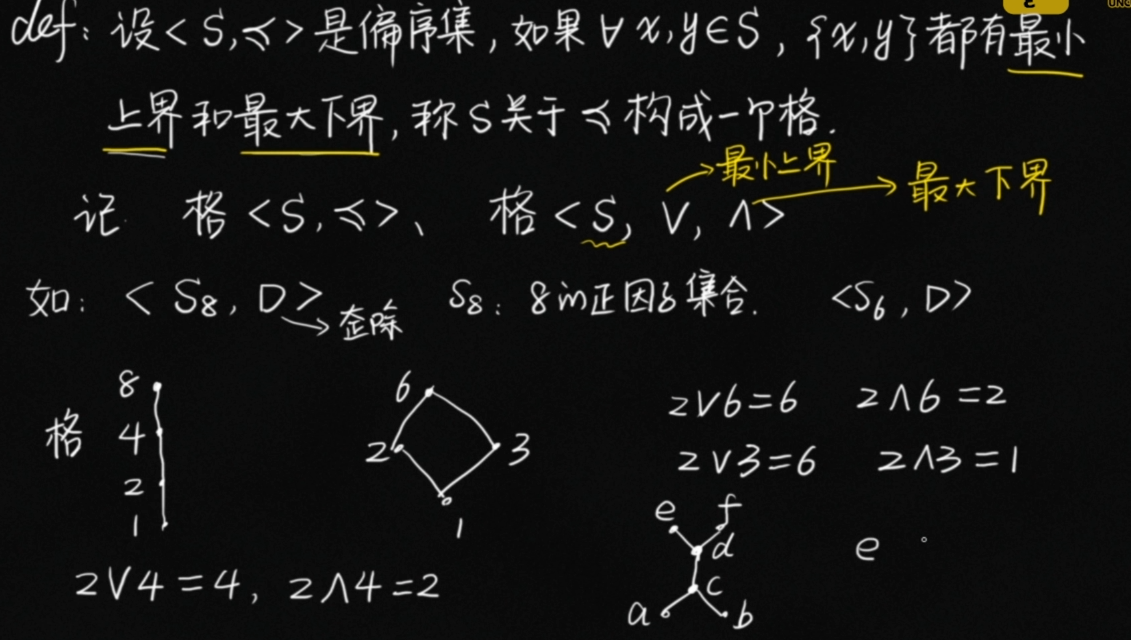 def: 设<S,≼>是偏序集,如果∀x,y∈S,{x,y}都有最小
上界和最大下界,称S关于≼构成一个格.
最小上界
最大下界
记 格<S,≼>、 格<S, ∨, ∧>
如: <S₈, D> S₈: 8的正因子集合. <S₆, D>
整除
8 6 2∨6=6 2∧6=2
格 4 2 3 2∨3=6 2∧3=1
2
1 1 e f
d e
2∨4=4, 2∧4=2 c
a b